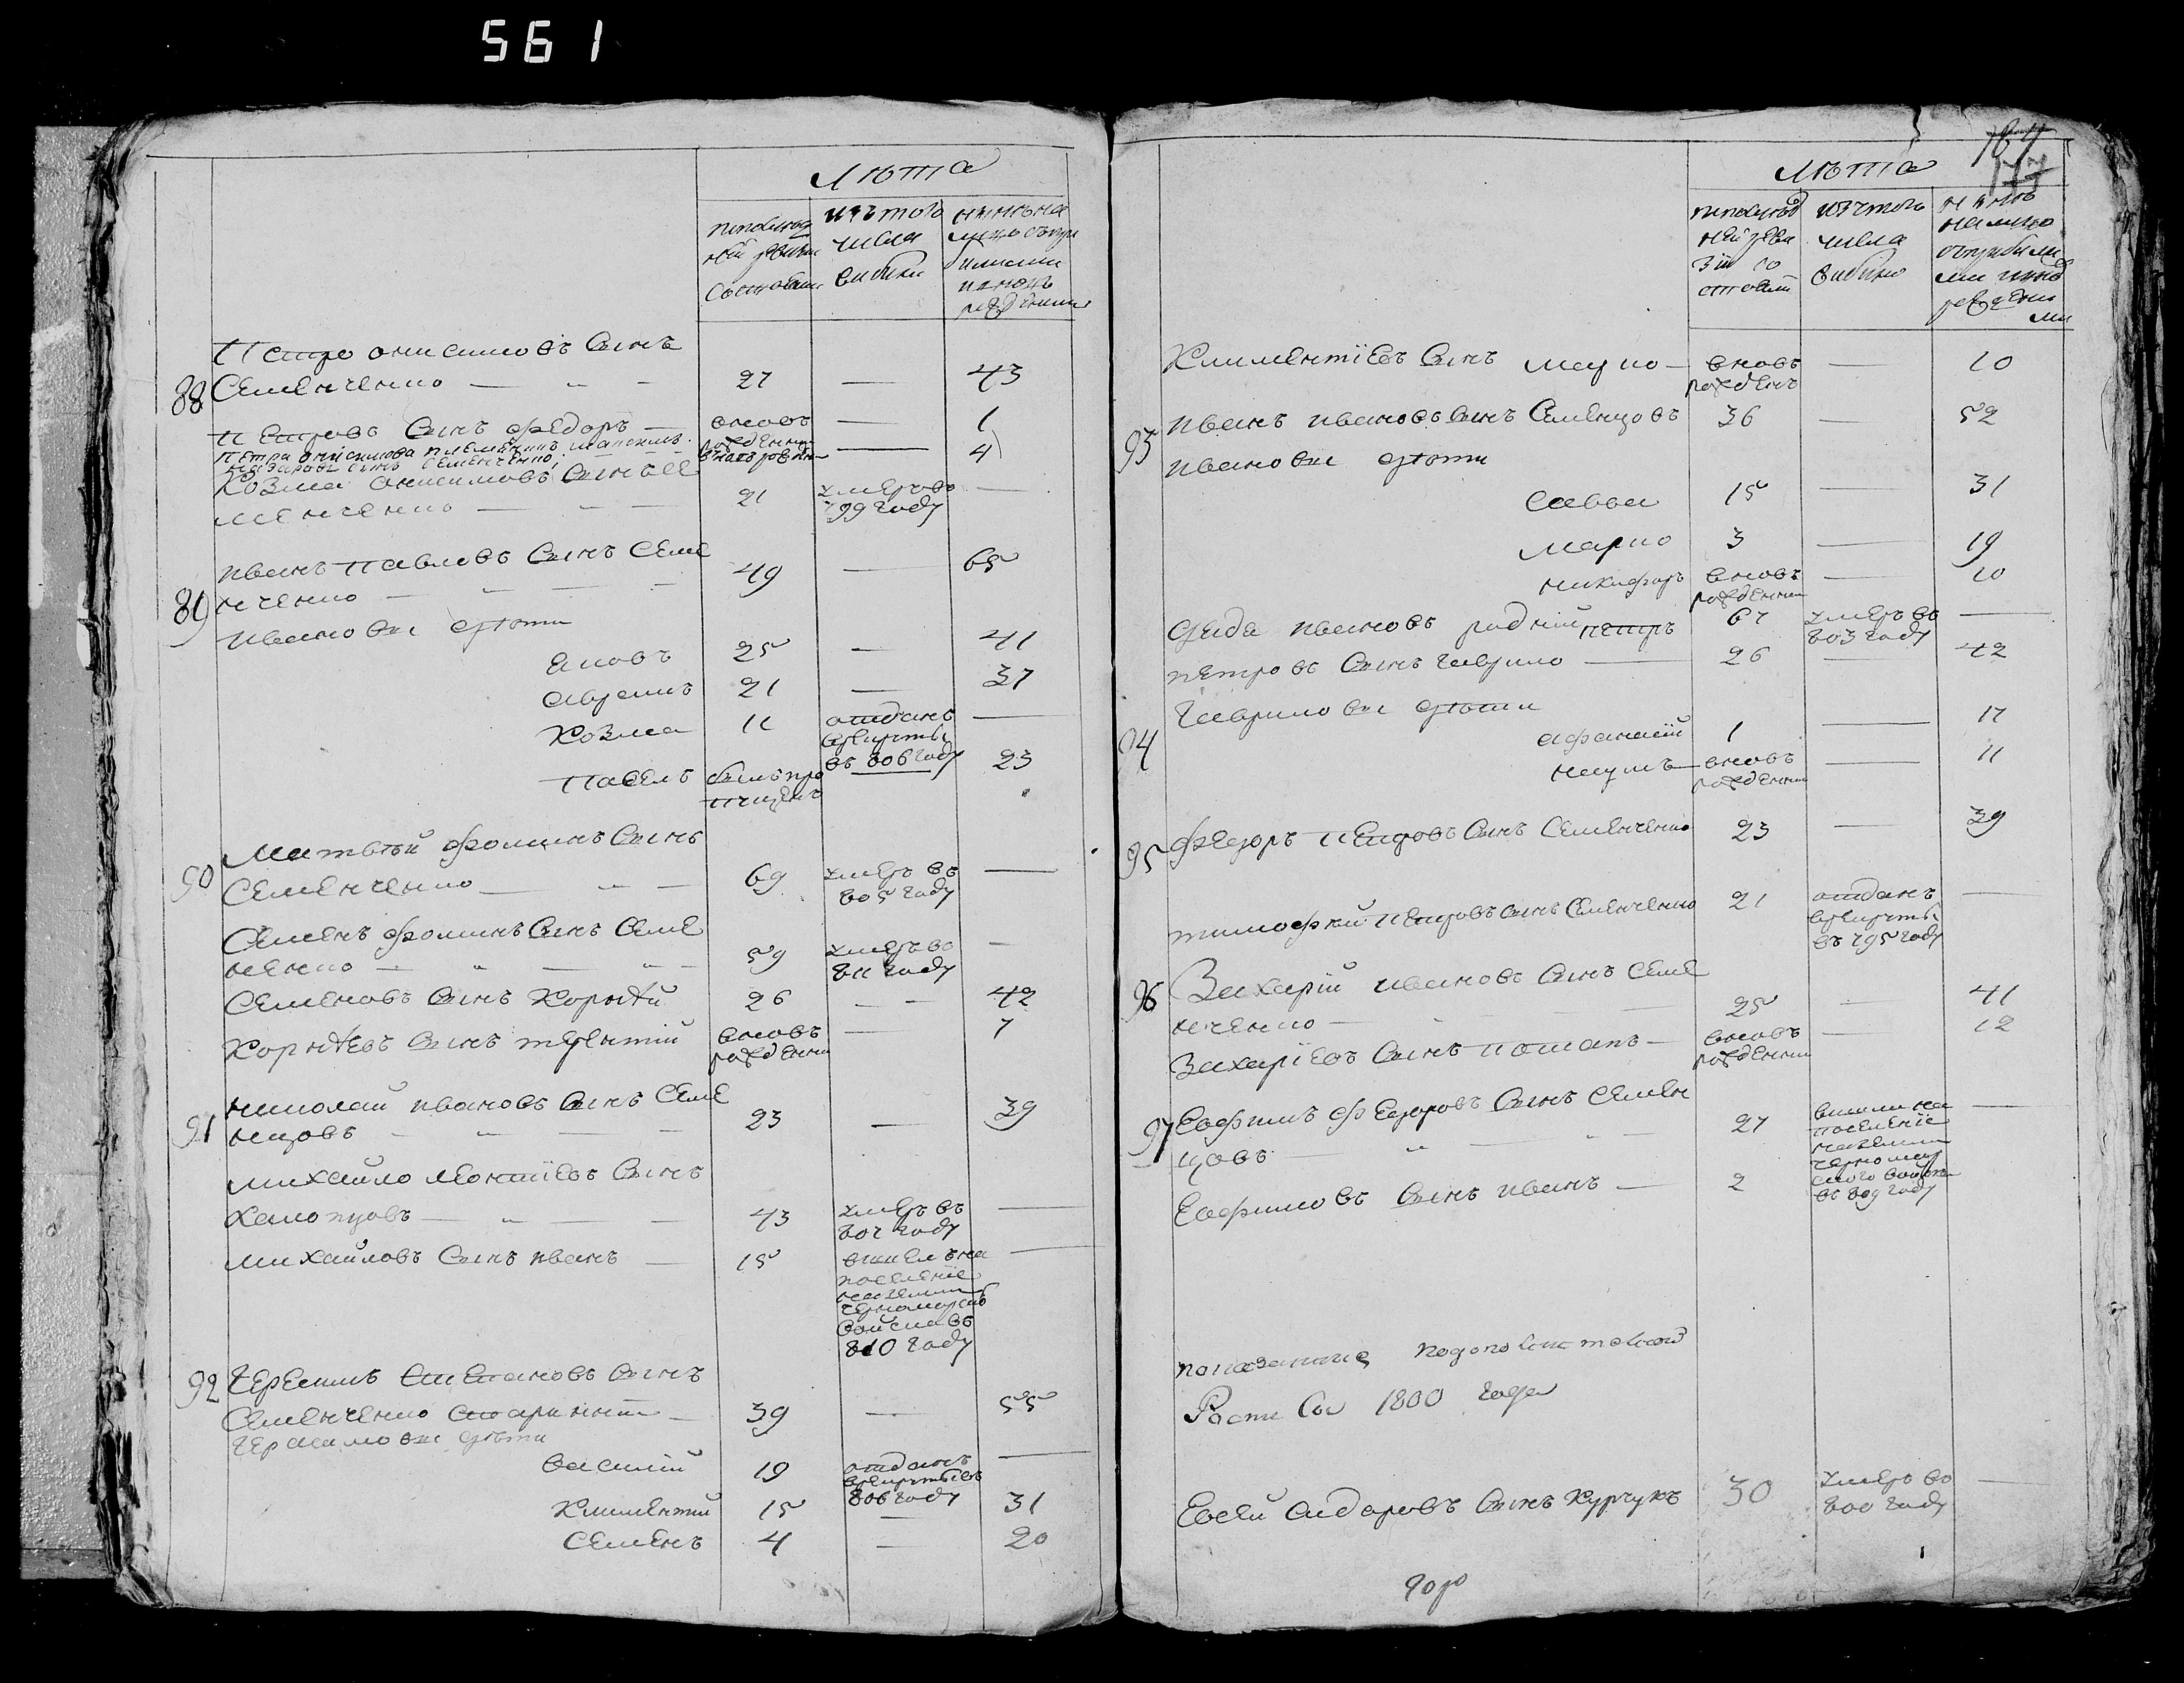 561
Лѣта
попослѣд ней ревизии состояли
изъ того числа выбыли
нынѣ на лицо съ при былыми и новь рожденными
Петро онисимовъ сынъ
88 Семенченко — „ — 27 — 43
Петровъ сынъ Федоръ — вновь рожденныи — 1
Петра онисимова племянникъ
сынъ Семенченко — 4
Козма онисимовъ сынъ Се
менченко — „ — 21 умеръ въ 799 году —
Иванъ Павловъ сынъ Семе
89 нченко — „ — 49 — 65
Ивановы дѣти
Яковъ 25 — 41
Абрамъ 21 — 37
Козма 11 отданъ врекруты въ 806 году —
Павелъ былъ пропущенъ 23
Матвѣй Фоминъ сынъ
90 Семенченко — „ — 69 умеръ въ 805 году —
Семенъ Фоминъ сынъ Семе
ненко — „ — „ — 59 умеръ во 811 году —
Семеновъ сынъ Корнѣй 26 — 42
Корнѣевъ сынъ терентій вновь рожденны — 7
Николай ивановъ сынъ Семе
91 нцовъ — „ — 23 — 39
Михайло леонтіевъ сынъ
Халопцовъ — „ — 43 умеръ въ 801 году —
Михайловъ сынъ иванъ — 15 вышелъ на поселеніе на земли черноморско войска въ 810 году —
92 Герасимъ Степановъ сынъ
Семенченко старшій — 39 — 55
Герасимовы дѣти
василій 19 отданъ врекруты въ 806 году —
Климентій 15 — 31
Семенъ 4 — 20
164
177
Лѣта
попослѣд ней реви зіи со стояли
изъ того числа выбыло
нынѣ на лицо съ прибылы ми и нов рожденны ми
Климентіевъ сынъ — вновь рожденъ — 10
93 иванъ ивановъ сынъ Семенцовъ 36 — 52
ивановы дѣти
Савва 15 — 31
Марко 3 — 19
никифоръ вновь рожденны — 10
Дядя ивановъ родній петръ 67 умеръ въ 803 году —
петровъ сынъ гаврило — 26 — 42
Гавриловы дѣти
94 афанасій 1 — 17
наумъ — вновь рожденны — 11
95 Федоръ Петровъ сынъ Семенченко 23 — 39
тимофей Петровъ сынъ Семенченко 21 отданъ врекруты въ 795 году —
96 Захарій ивановъ сынъ Семе
нченко — „ — 25 — 41
Захаріевъ сынъ Потапъ — вновь рожденны — 12
97 Евфимъ Федоровъ сынъ Семен
цовъ — „ — 27 вышли на поселеніе на земли черномор ского войска въ 809 году —
Евфимовъ сынъ иванъ — 2
показанние
1800 года
Евсей Сидоровъ сынъ Курчукъ 30 умеръ во 800 году —